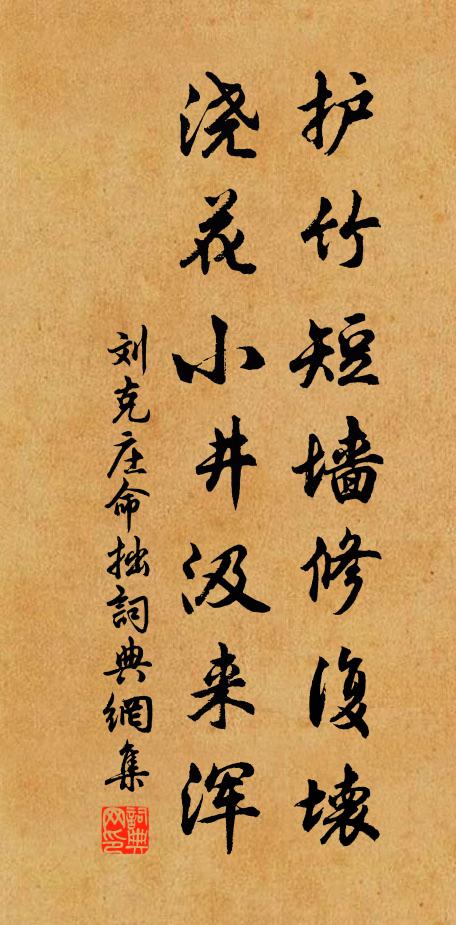 护竹短墙修復壊
浇花小井汲来浑
刘克庄命拙詞典網集
詞典网印